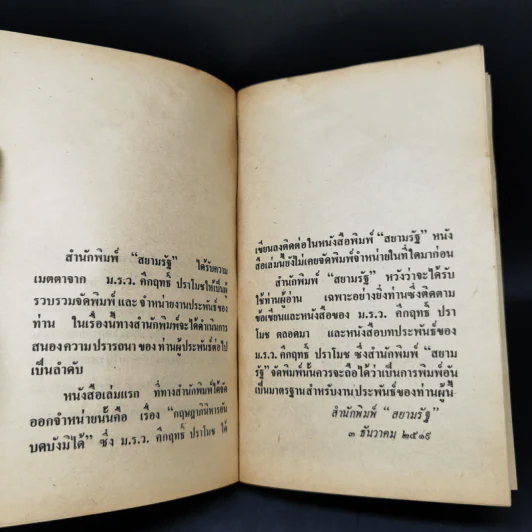 สำนักพิมพ์ "สยามรัฐ" ได้รับความ
เมตตาจาก ม.ร.ว. คึกฤทธิ์ ปราโมชให้เป็นผู้
รวบรวมจัดพิมพ์ และจำหน่ายงานประพันธ์ของ
ท่าน ในเรื่องนี้ทางสำนักพิมพ์จะได้ดำเนินการ
สนองความปรารถนา ของ ท่านผู้ประพันธ์ต่อไป
เป็นลำดับ
หนังสือเล่มแรก ที่ทางสำนักพิมพ์ได้จัด
ออกจำหน่ายนั้นคือ เรื่อง "กฤษฎาภินิหารอัน
บดบังมิได้" ซึ่ง ม.ร.ว. คึกฤทธิ์ ปราโมช ได้
เขียนลงติดต่อในหนังสือพิมพ์ "สยามรัฐ" หนัง
สือเล่มนี้ยังไม่เคยจัดพิมพ์จำหน่ายในที่ใดมาก่อน
สำนักพิมพ์ "สยามรัฐ" หวังว่าจะได้รับ
ใช้ท่านผู้อ่าน เฉพาะอย่างยิ่งท่านซึ่งติดตาม
ข้อเขียนและหนังสือของ ม.ร.ว. คึกฤทธิ์ ปรา
โมช ตลอดมา และหนังสือบทประพันธ์ของ
ม.ร.ว. คึกฤทธิ์ ปราโมช ซึ่งสำนักพิมพ์ "สยาม
รัฐ" จัดพิมพ์นั้นควรจะถือได้ว่าเป็นการพิมพ์อัน
เป็นมาตรฐานสำหรับงานประพันธ์ของท่านผู้นี้
สำนักพิมพ์ "สยามรัฐ"
๓ ธันวาคม ๒๕๑๙